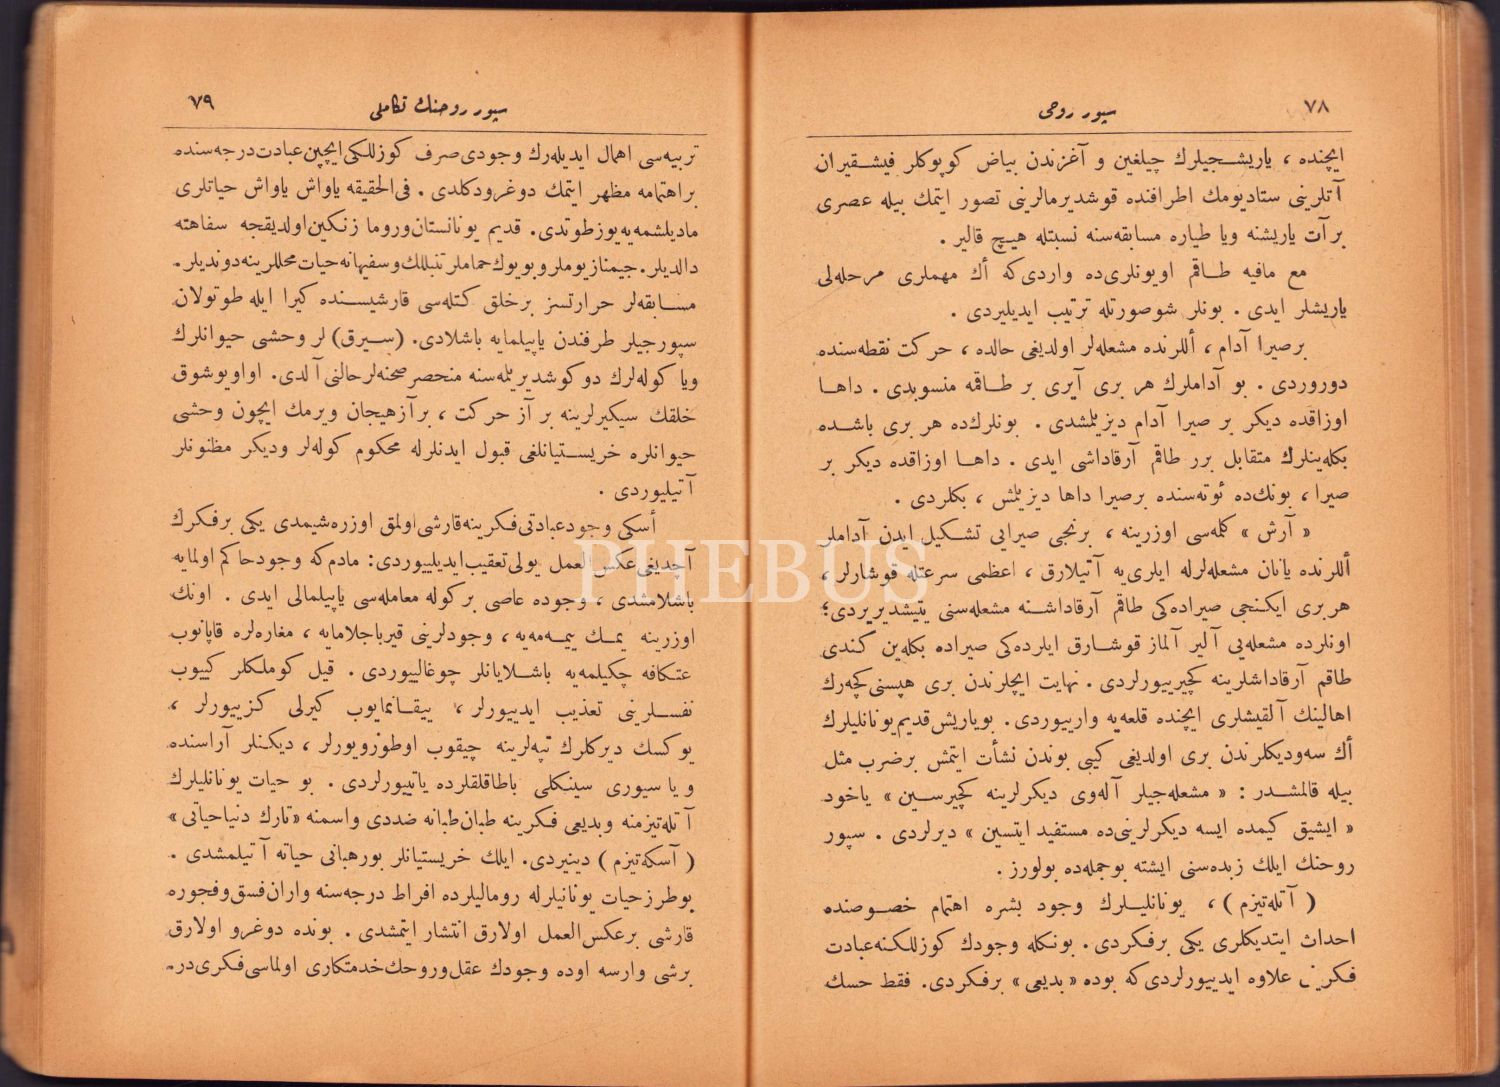 ٧٨
سپور روحی
ایچنده ، یاریشـجیلرك چیلغین و آغزندن بیاض كوپوكلر فیشقیران
آتلرینی ستادیومك اطرافنده قوشدیرمالرینی تصور ایتمك بیله عصری
بر آت یاریشنه ویا طیاره مسابقه‌سنه نسبتله هیـچ قالیر .
مع مافیه طـاقم اویونلری‌ده واردی‌كه أك مهملری مرحله‌لی
یاریشلر ایدی . بونلر شوصورتله ترتیب ایدیلیردی .
برصیرا آدام ، أللرنده مشعله‌لر اولدیغی حالده ، حركت نقطه‌سنده
دوروردی . بو آداملرك هر بری آیری بر طـاقمه منسوبدی . داهـا
اوزاقده دیكر بر صیرا آدام دیزیلمشدی . بونلرك‌ده هر بری باشـده
بكله‌ینلرك متقابل برر طاقم آرقاداشی ایدی . داهـا اوزاقده دیكر بر
صیرا ، بونك‌ده ئوته‌سنده برصیرا داها دیزیلمش ، بكلردی .
« آرش » كلمه‌سی اوزرینه ، برنجی صیرایی تشـكیل ایدن آداملر
أللرنده یانان مشعله‌لرله ایلری‌یه آتیلارق ، اعظمی سرعتله قوشارلر ،
هر بری ایكـنجی صیراده‌كی طاقم آرقاداشـنه مشعله‌سنی یتیشدیریردی؛
اونلرده مشعله‌یی آلیر آلماز قوشـارق ایلرده‌كی صیراده بكله‌ین كـندی
طاقم آرقاداشلرینه كچیرییورلردی . نهایت ایچلرندن بری هپسنی كچه‌رك
اهالینك آلقیشلری ایچنده قلعه‌یه وارییوردی . بویاریش قدیم یونانلیلرك
أك سه‌ودیكلرندن بری اولدیغی كیبی بوندن نشأت ایتمش برضرب مثل
بیله قالمشـدر : « مشعله‌جیلر آله‌وی دیكرلرینه كچیرسـین » یاخود
« ایشیق كیمده ایسه دیكرلرینی‌ده مستفید ایتسین » دیرلردی . سپور
روحنك ایلك زبده‌سنی ایشته بوجمله‌ده بولورز .
( آتله‌تیزم ) ، یونانلیـلرك وجود بشره اهتمام خصـوصنده
احداث ایتدیكلری یكی برفكردی . بونكله وجودك كوزللكنه عبادت
فـكرینی علاوه ایدییورلردی‌كه بوده « بدیعی » برفكردی . فقط حسك
٧٩
سپور روحنك تكاملی
تربیه‌سی اهمال ایدیله‌رك وجودی صرف كوزللكی ایچین عبادت درجه‌سنده
براهتمامه مظهر ایتمك دوغرودكلدی . فی‌الحقیقه یاواش یاواش حیاتلری
مادیلشمه‌یه یوزطوتدی. قدیم یونانستان وروما زنكین اولدیقجه سفاهته
دالدیلر . جیمنازیوملر و بویوك حماملر تنبللك وسفیهانه حیات محللرینه دوندیلر.
مسـابقه‌لر حرارتسز برخلق كتله‌سی قارشیسـنده كیرا ایله طوتولان
سپورجیلر طرفندن یاپیلمایه باشلادی. (سـیرق) لر وحشی حیوانلرك
ویا كوله‌لرك دوكوشدیریلمه‌سنه منحصر صحنه‌لر حالنی آلدی. او اویوشوق
خلقك سیكیرلرینه بر آز حركت ، برآز هیجان ویرمك ایچون وحشی
حیوانلره خریسـتیانلغی قبول ایدنلرله محكوم كوله‌لر ودیكر مظنونلر
آتیلیوردی .
أسكی وجود عبادتی فـكرینه قارشی اولمق اوزره شیمدی یكی برفكرك
آچدیغی عكس‌العمل یولی تعقیب ایدیلییوردی: مادم‌كه وجود حاكم اولمایه
باشلامشدی ، وجوده عاصی بركوله معامله‌سی یاپیلمالی ایدی . اونك
اوزرینه یمـك ییمـه‌مه‌یه ، وجودلرینی قیرباجلامایه ، مغاره‌لره قاپانوب
عتكافه چكیلمه‌یه باشـلایانلر چوغالییوردی . قیل كوملكلر كییوب
نفسـلرینی تعذیب ایدییورلر ، ییقـانمایوب كیرلی كـزییورلر ،
یوكسك دیركلرك تپه‌لرینه چیقوب اوطوریورلر ، دیكنلر آراسنده
ویا سیوری سینكلی باطاقلقلرده یاتییورلردی . بو حیات یونانلیلرك
آتله‌تیزمنه وبدیعی فـكرینه طبان طبانه ضددی واسمنه « تارك دنیا حیاتی »
( آسكه‌تیزم ) دینیردی. ایلك خریستیانلر بورهبانی حیاته آتیلمشدی .
بوطرز حیات یونانیلرله رومالیلرده افراط درجه‌سنه واران فسق وفجوره
قارشی برعكس‌العمل اولارق انتشار ایتمشدی . بونده دوغرو اولارق
برشی وارسه اوده وجودك عقل وروحك خدمتكاری اولماسی فـكری‌در.
PHEBUS